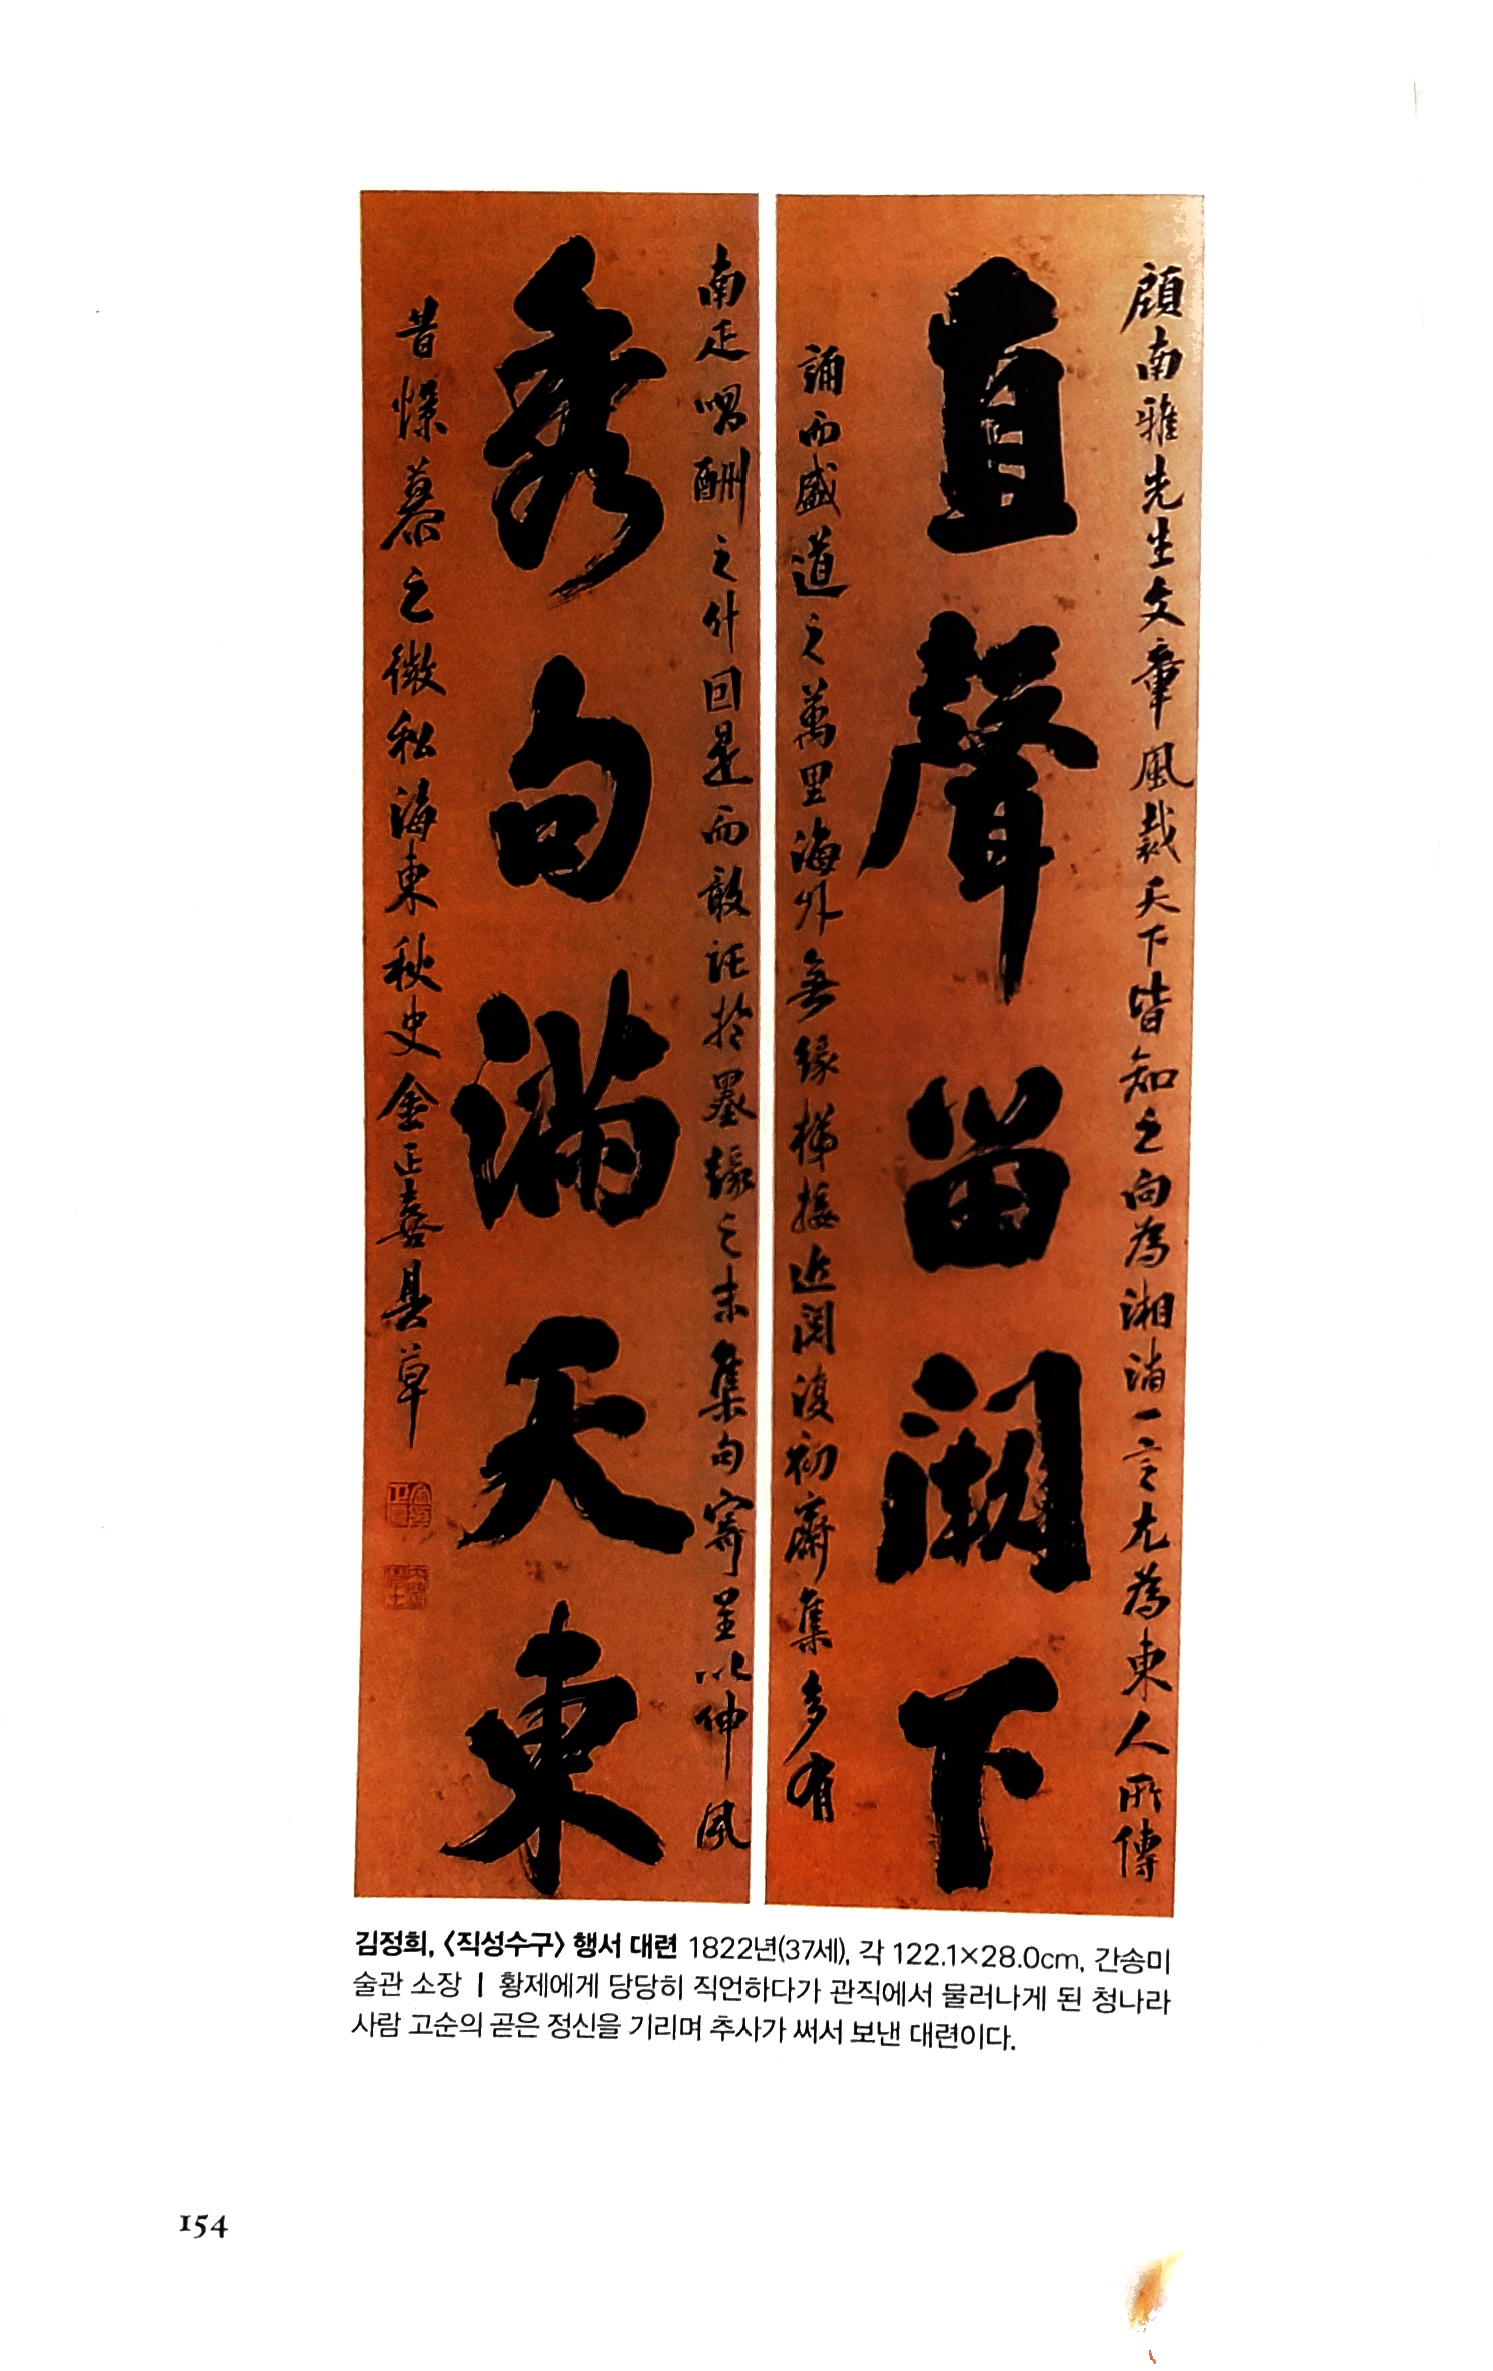 顧南雅先生文章風裁天下皆知之向爲湘淸一言尤爲東人所傳
直聲留闕下
誦而盛道之萬里海外無緣梯接近閱復初齋集多有
南疋唱酬之什回是而敢託於墨緣之末集句寄呈以伸夙
秀句滿天東
昔懷慕之微私海東秋史金正喜具草
김정희, 〈직성수구〉 행서 대련 1822년(37세), 각 122.1×28.0cm, 간송미
술관 소장 | 황제에게 당당히 직언하다가 관직에서 물러나게 된 청나라
사람 고순의 곧은 정신을 기리며 추사가 써서 보낸 대련이다.
154